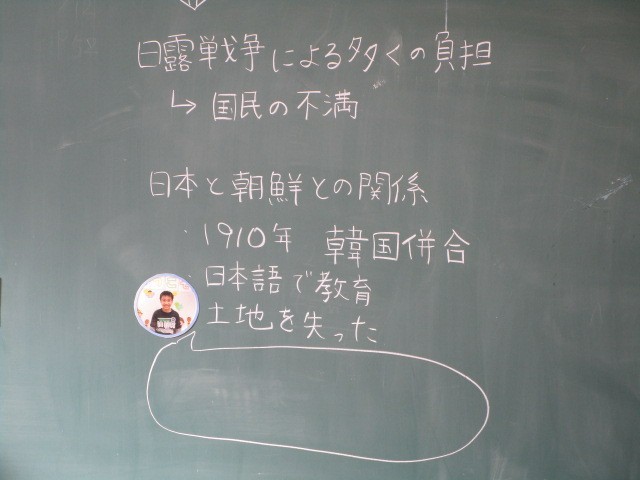 日露戦争による多くの負担
↳ 国民の不満
日本と朝鮮との関係
・1910年 韓国併合
・日本語で教育
土地を失った